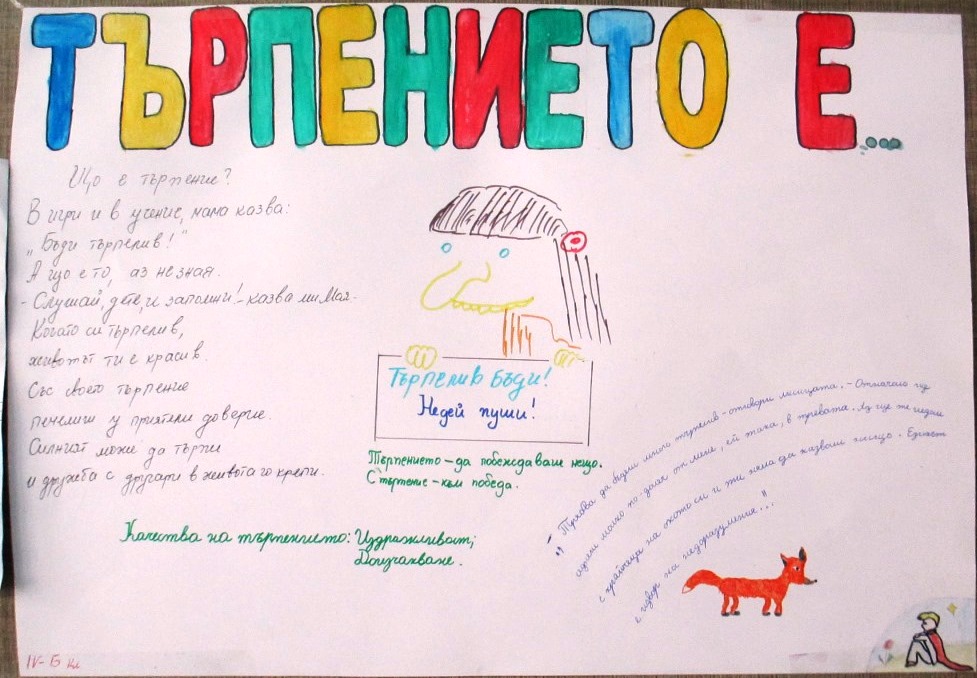 ТЪРПЕНИЕТО Е...
Що е търпение?
В игри и в учение, мама казва:
„Бъди търпелив!"
А що е то, аз не зная.
- Слушай, дете, и запомни! - казва ми Мая.
Когато си търпелив,
животът ти е красив.
Със своето търпение
печелиш у приятели доверие.
Силният може да търпи
и дружба с другари в живота го крепи.
Търпелив бъди!
Недей пуши!
Търпението - да побеждаваш нещо.
С търпение - към победа.
Качества на търпението: Издражливост;
Доизчакване.
„Трябва да бъдеш много търпелив - отговори лисицата. - Отначало ще
седнеш малко по-далеч от мене, ей така, в тревата. Аз ще те гледам
с крайчеца на окото си и ти няма да казваш нищо. Езикът
е извор на недоразумения..."
IV - Б кл